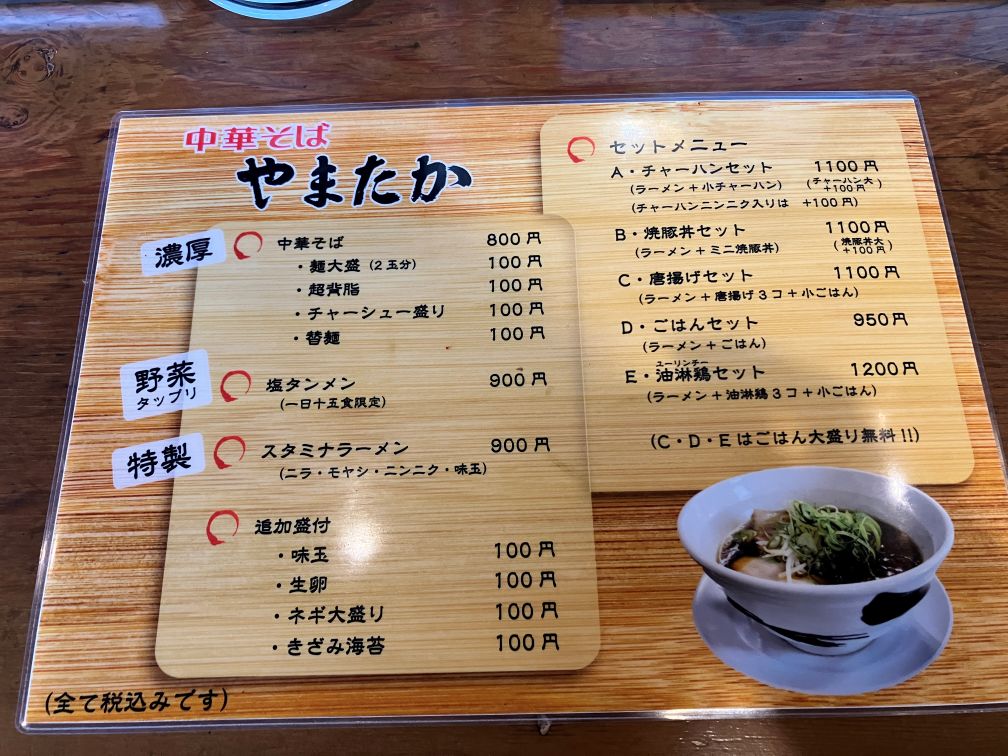 中華そば
やまたか
濃厚
中華そば 800円
・麺大盛(2玉分) 100円
・超背脂 100円
・チャーシュー盛り 100円
・替麺 100円
野菜
タップリ
塩タンメン 900円
(一日十五食限定)
特製
スタミナラーメン 900円
(ニラ・モヤシ・ニンニク・味玉)
追加盛付
・味玉 100円
・生卵 100円
・ネギ大盛り 100円
・きざみ海苔 100円
(全て税込みです)
セットメニュー
A・チャーハンセット 1100円
(ラーメン+小チャーハン) (チャーハン大
+100円)
(チャーハンニンニク入りは +100円)
B・焼豚丼セット 1100円
(ラーメン+ミニ焼豚丼) (焼豚丼大
+100円)
C・唐揚げセット 1100円
(ラーメン+唐揚げ3コ+小ごはん)
D・ごはんセット 950円
(ラーメン+ごはん)
ユーリンチー
E・油淋鶏セット 1200円
(ラーメン+油淋鶏3コ+小ごはん)
(C・D・Eはごはん大盛り無料!!)